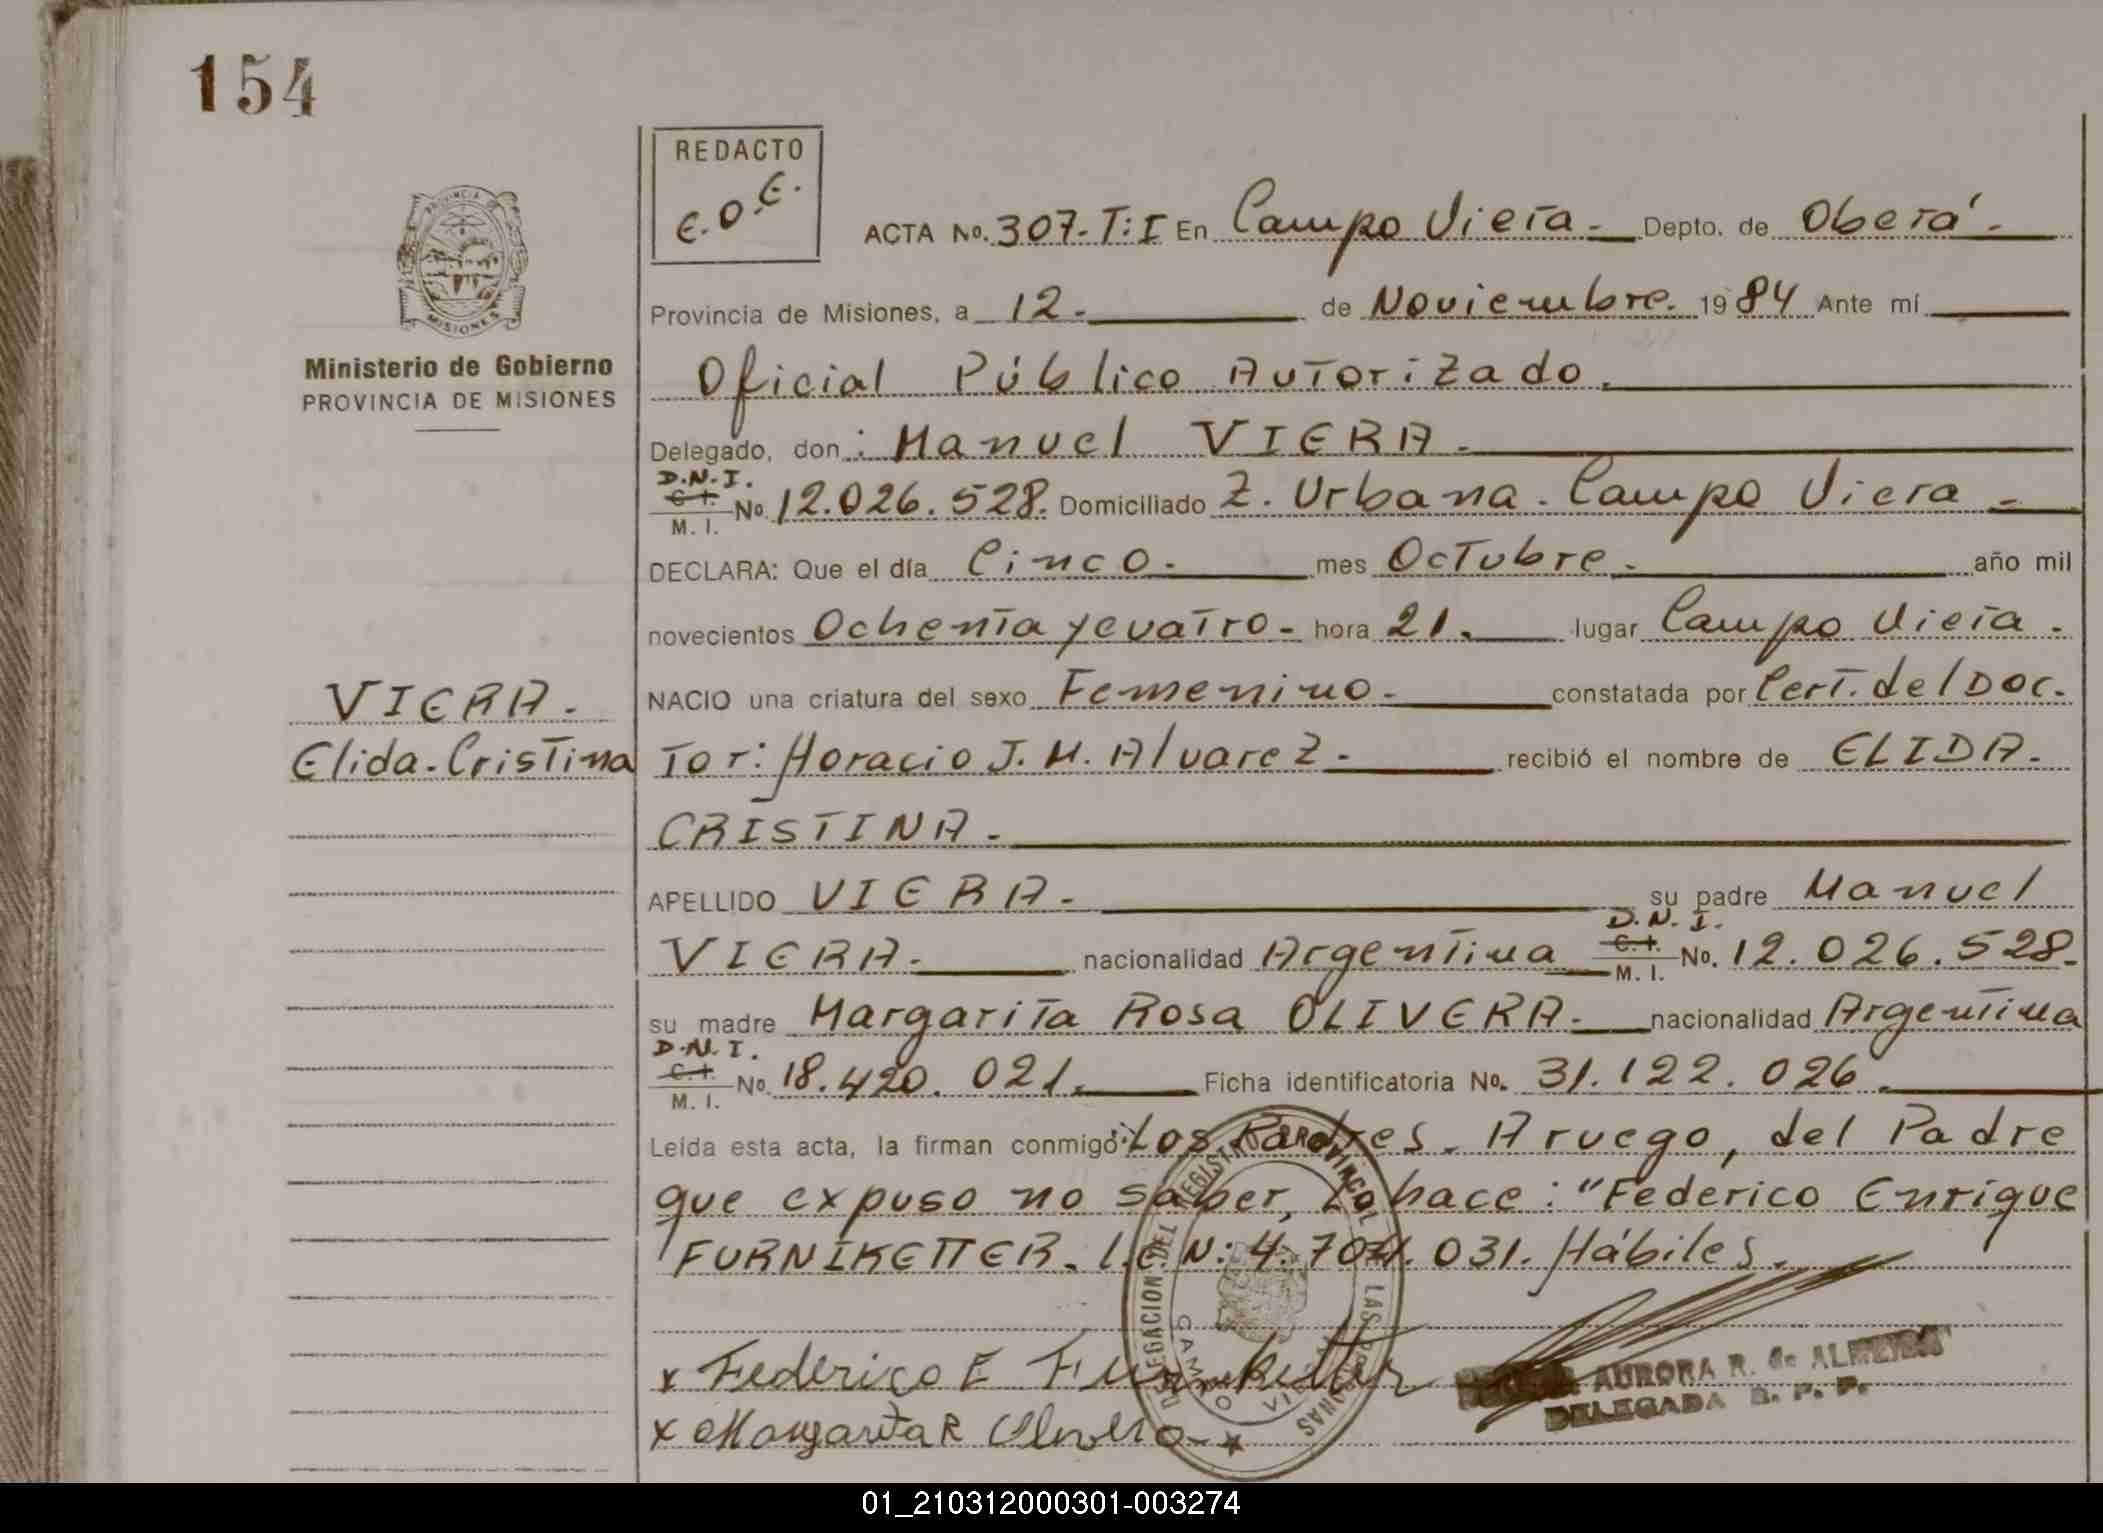 154
REDACTO
E.O.E.
ACTA No. 307-T:I En Campo Viera. Depto. de Oberá.
PROVINCIA DE
MISIONES
Provincia de Misiones, a 12. de Noviembre. 1984 Ante mí
Ministerio de Gobierno
PROVINCIA DE MISIONES
Oficial Público Autorizado.
Delegado, don: Manuel VIERA.
D.N.I.
C.I.
M. I. No. 12.026.528. Domiciliado Z. Urbana. Campo Viera.
DECLARA: Que el día Cinco. mes Octubre. año mil
novecientos Ochenta y cuatro. hora 21. lugar Campo Viera.
VIERA. NACIO una criatura del sexo Femenino. constatada por Cert. del Doc.
Elida. Cristina Tor: Horacio J. M. Alvarez. recibió el nombre de ELIDA.
CRISTINA.
APELLIDO VIERA. su padre Manuel
VIERA. nacionalidad Argentina D.N.I. C.I. M. I. No. 12.026.528.
su madre Margarita Rosa OLIVERA. nacionalidad Argentina
D.N.I.
C.I.
M. I. No. 18.420.021. Ficha identificatoria No. 31.122.026.
Leída esta acta, la firman conmigo: Los Padres. A ruego, del Padre
que expuso no saber, Lo hace: "Federico Enrique
FURNIKETTER. L.E.N: 4.704.031. Hábiles.
DELEGACION DEL REGISTRO PROVINCIAL DE LAS PERSONAS
CAMPO VIERA
x Federico E Furniketter
AURORA R. de ALMEIDA
DELEGADA R. P. P.
x Margarita R Olivera
01_210312000301-003274